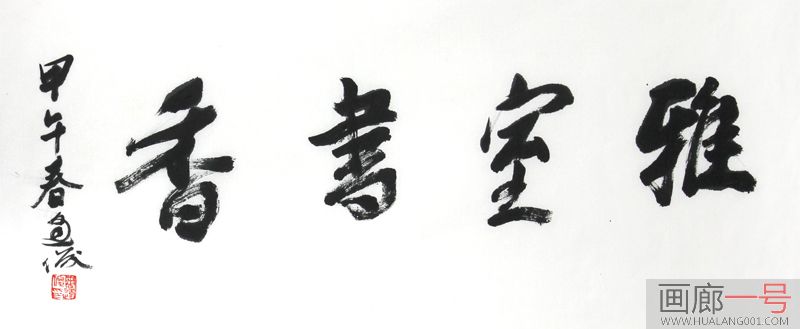 雅室書香
甲午春
画廊一号
WWW.HUALANG001.COM